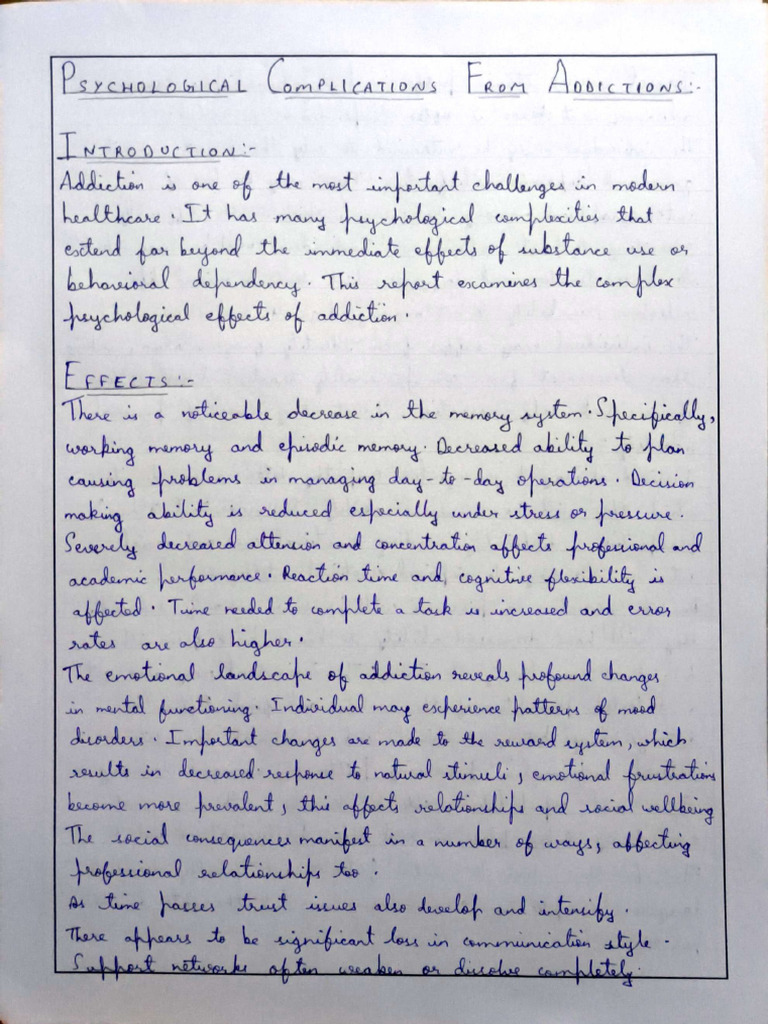 PSYCHOLOGICAL COMPLICATIONS FROM ADDICTIONS:-
INTRODUCTION:-
Addiction is one of the most important challenges in modern
healthcare. It has many psychological complexities that
extend far beyond the immediate effects of substance use or
behavioral dependency. This report examines the complex
psychological effects of addiction.
EFFECTS:-
There is a noticeable decrease in the memory system. Specifically,
working memory and episodic memory. Decreased ability to plan
causing problems in managing day-to-day operations. Decision
making ability is reduced especially under stress or pressure.
Severely decreased attension and concentration affects professional and
academic performance. Reaction time and cognitive flexibility is
affected. Time needed to complete a task is increased and error
rates are also higher.
The emotional landscape of addiction reveals profound changes
in mental functioning. Individual may experience patterns of mood
disorders. Important changes are made to the reward system, which
results in decreased response to natural stimuli, emotional frustrations
become more prevalent, this affects relationships and social wellbeing
The social consequences manifest in a number of ways, affecting
professional relationships too.
As time passes trust issues also develop and intensify.
There appears to be significant loss in communication style.
Support networks often weaken or dissolve completely.